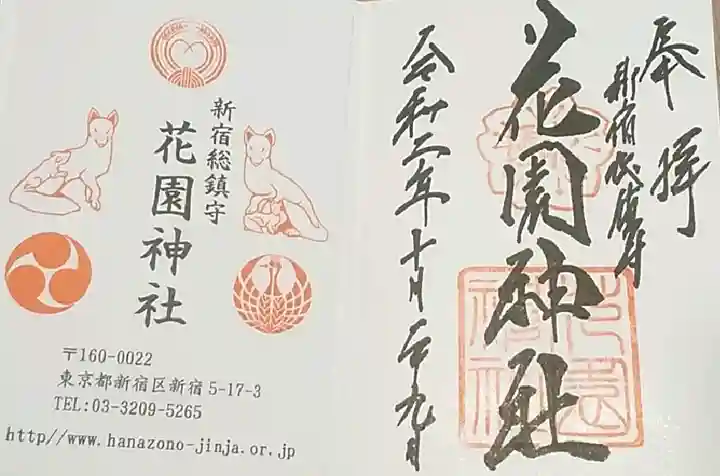 新宿総鎮守
花園神社
〒160-0022
東京都新宿区新宿5-17-3
TEL:03-3209-5265
http//www.hanazono-jinja.or.jp
奉拝
新宿総鎮守
花園神社
令和二年十月二十九日
花園神社